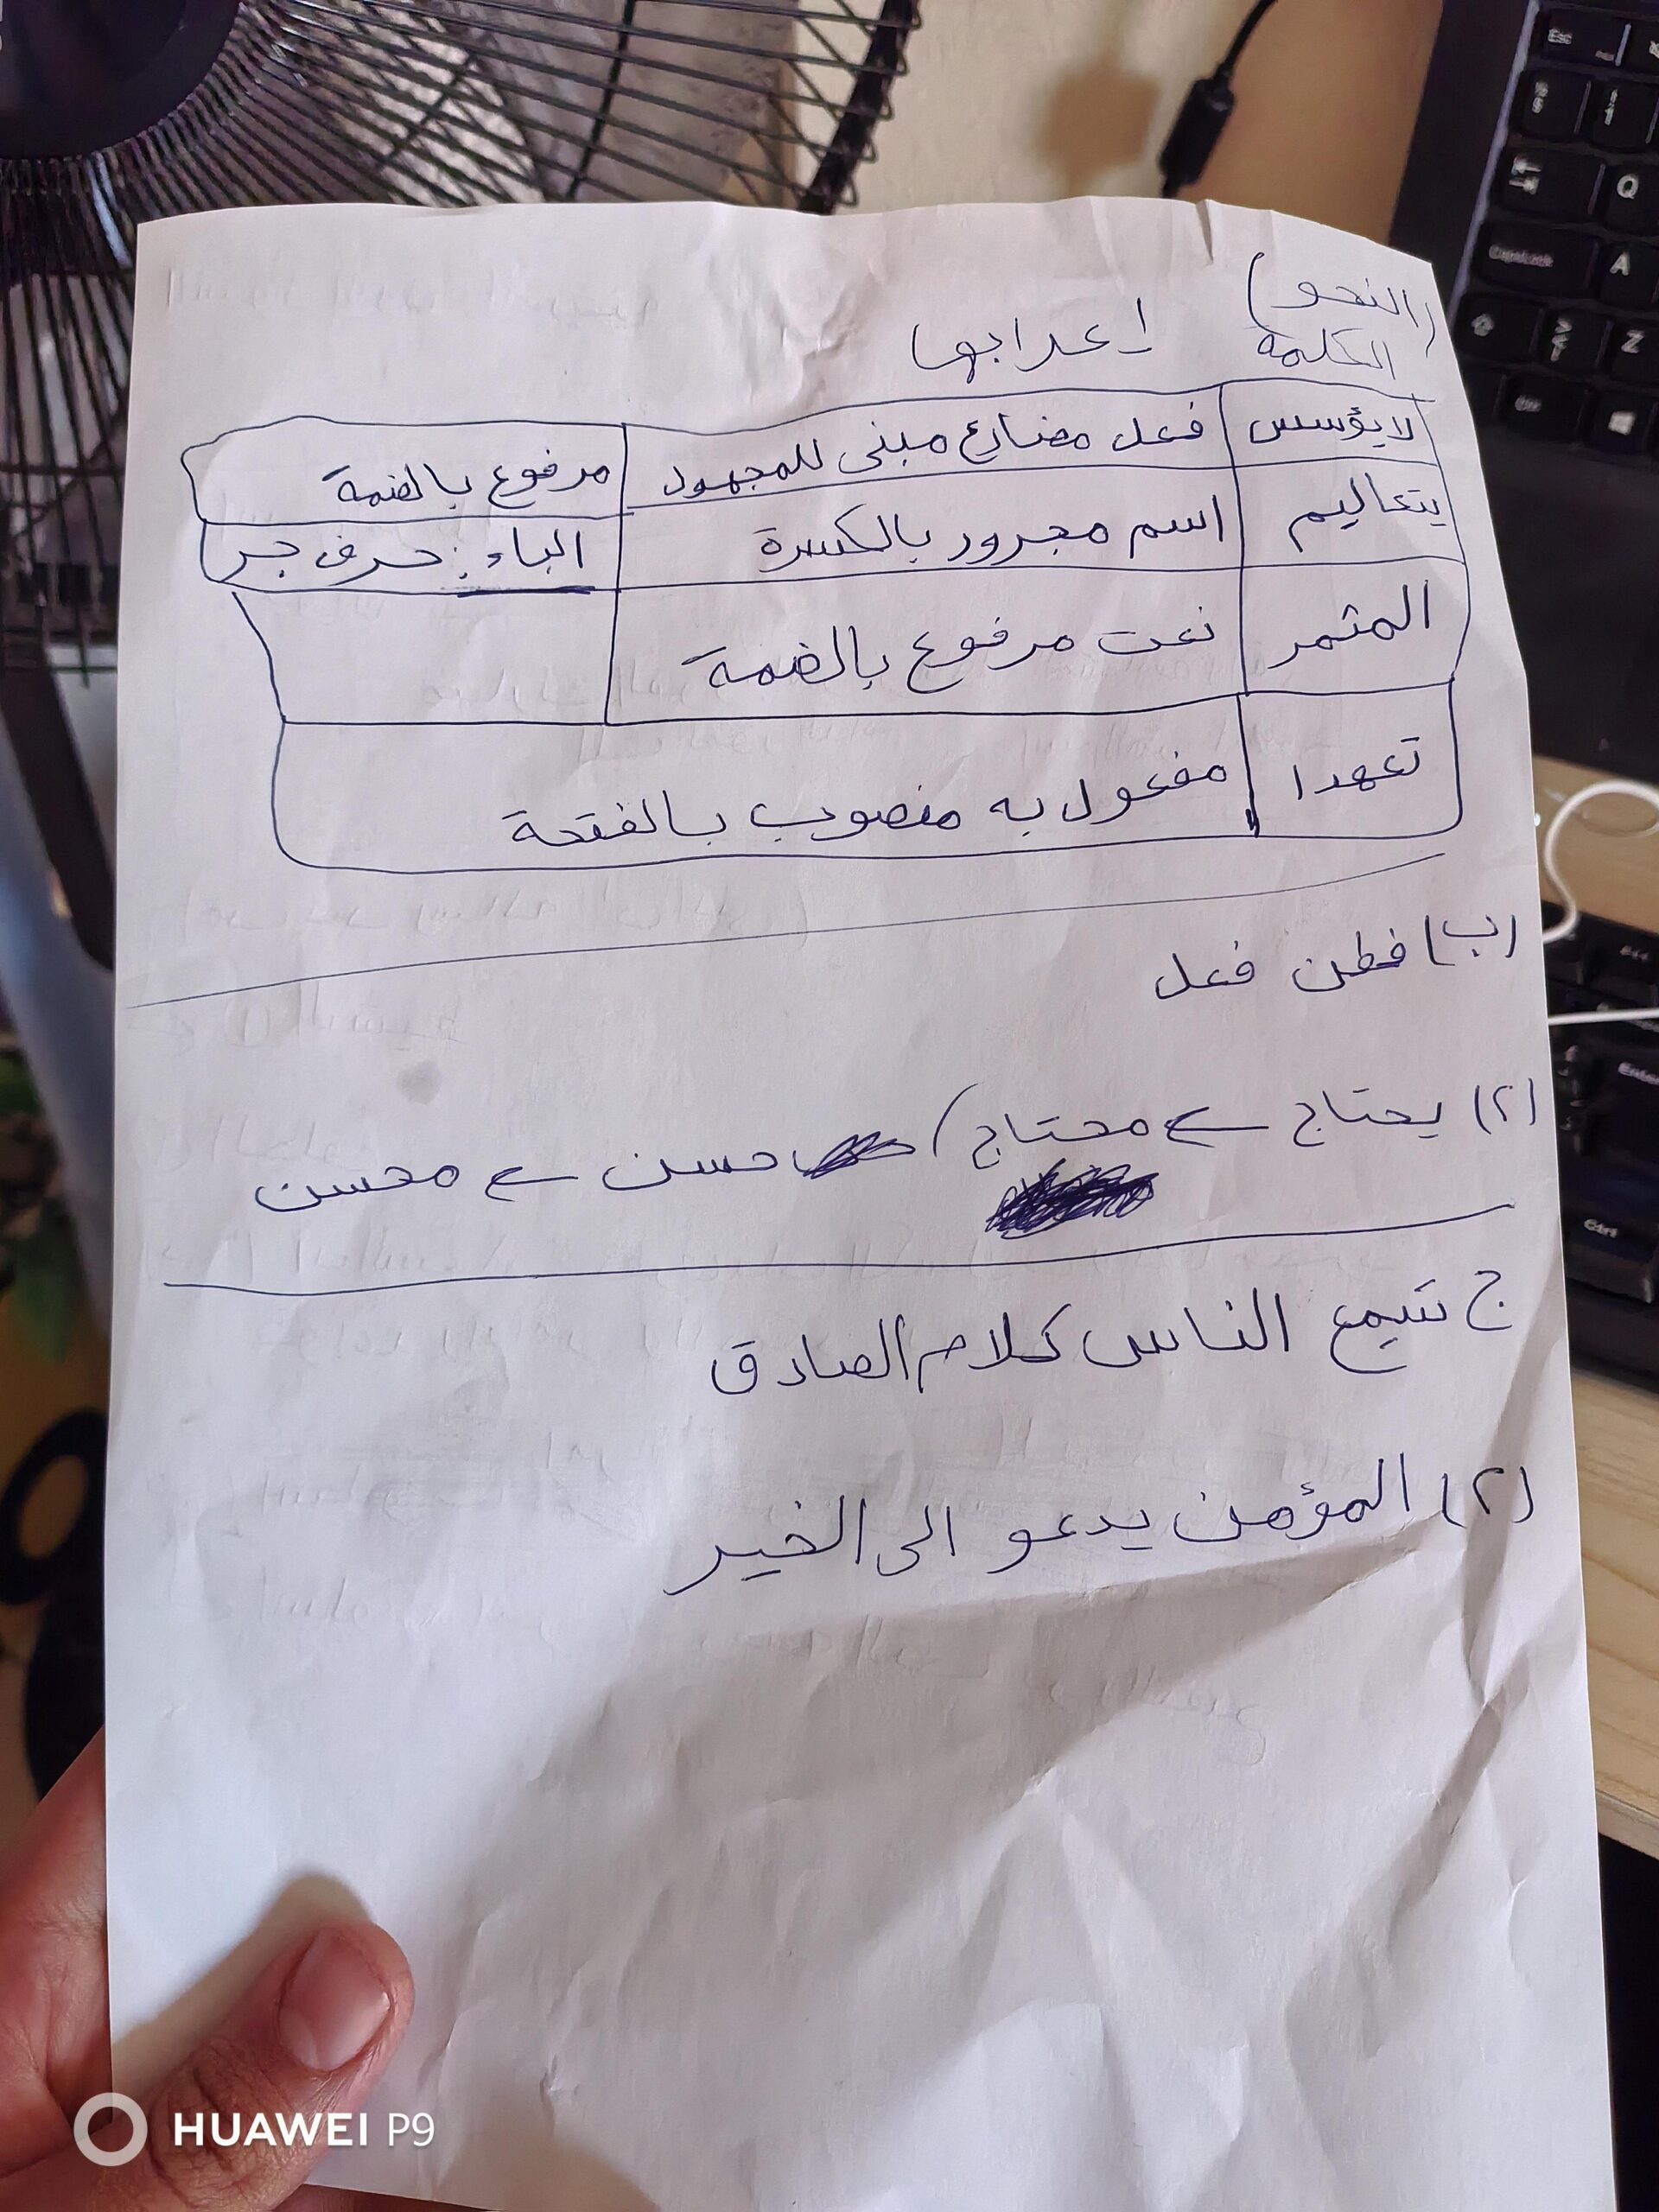 (النحو)
الكلمة اعرابها
لايؤسس فعل مضارع مبنى للمجهول مرفوع بالضمة
بتعاليم اسم مجرور بالكسرة الباء: حرف جر
المثمر نعت مرفوع بالضمة
تعهدا مفعول به منصوب بالفتحة
(ب) فطن فعل
(٢) يحتاج ← محتاج) حسن ← محسن
ج الناس كلام الصادق
(٢) المؤمن يدعو الى الخير
HUAWEI P9
Esc
Q
CapsLock
A
Z
Ctrl